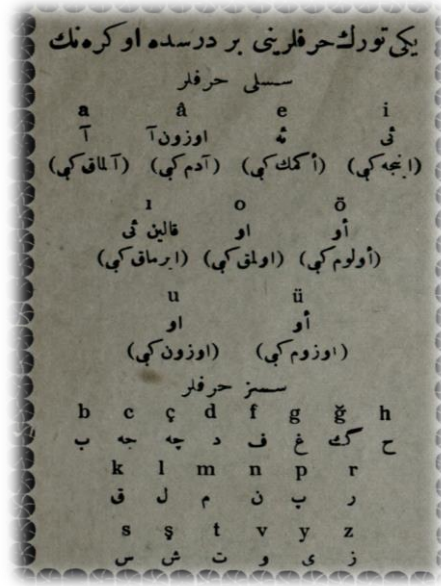 يكى تورك حرفلرينى بر درسده اوكره نك
سسلى حرفلر
a â e i
آ اوزون آ ئه ئى
(آلماق كبى) (آدم كبى) (أكمك كبى) (اينجه كبى)
ı o ö
قالين ئى او أو
(ايرماق كبى) (اولمق كبى) (أولوم كبى)
u ü
او أو
(اوزون كبى) (اوزوم كبى)
سسز حرفلر
b c ç d f g ğ h
ب جه چه د ف غ گ ح
k l m n p r
ق ل م ن پ ر
s ş t v y z
س ش ت و ى ز